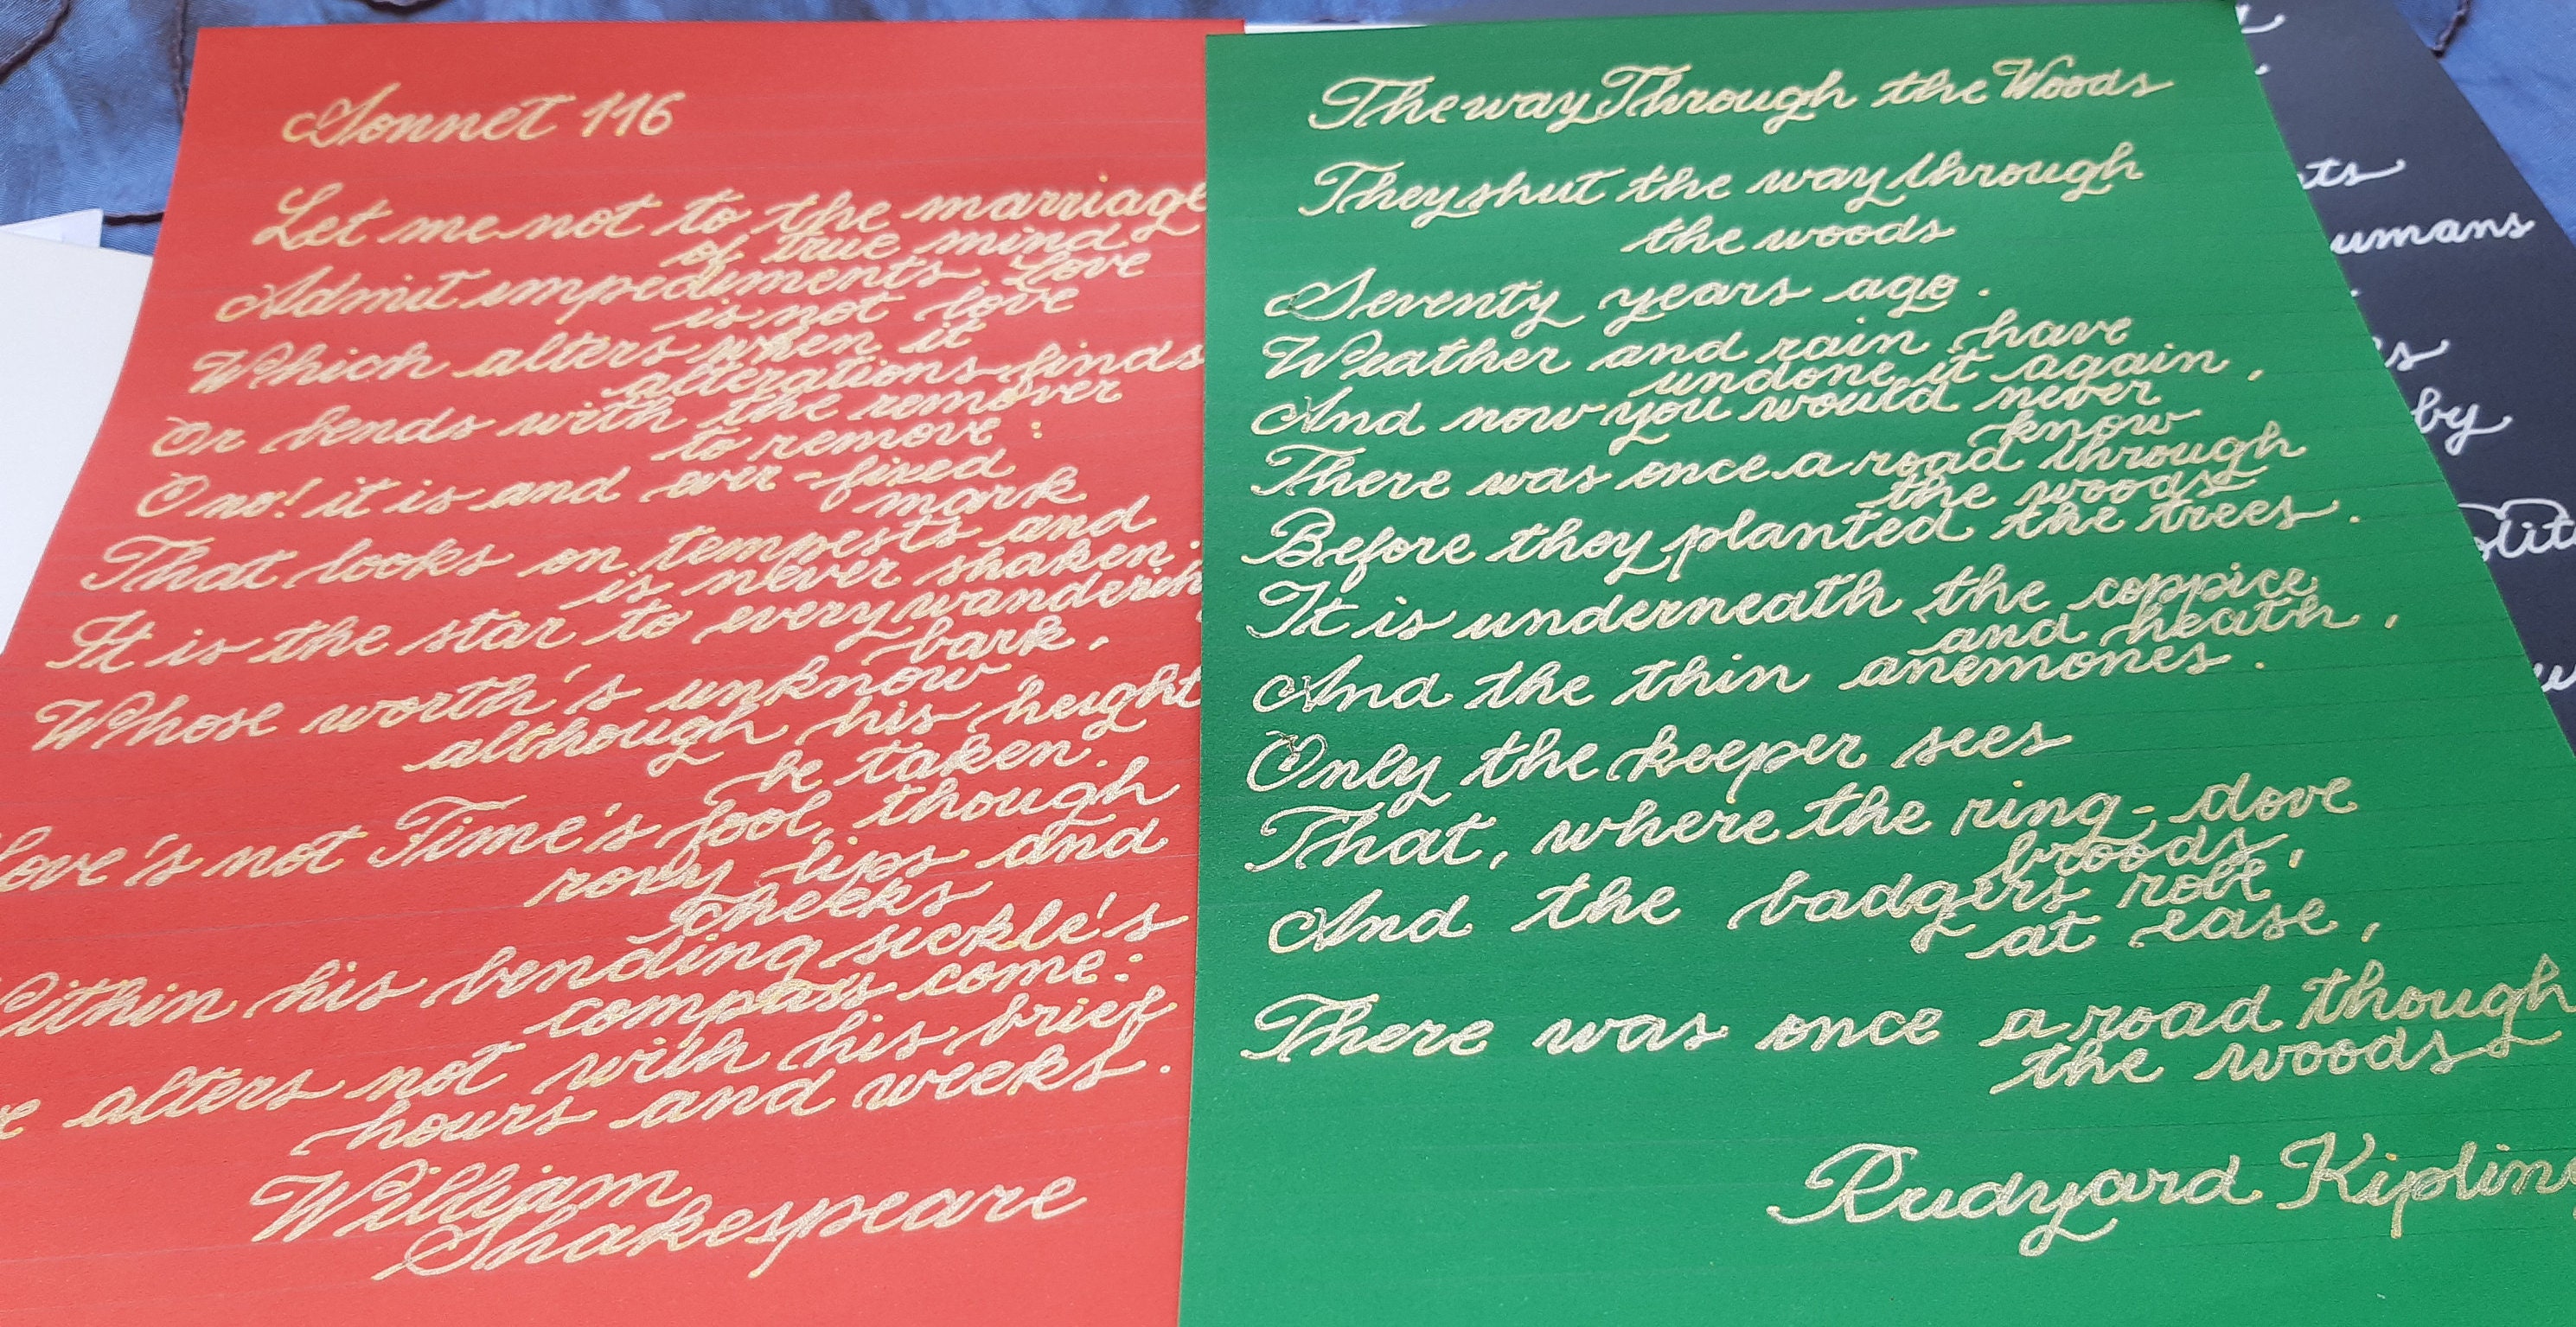 Sonnet 116
Let me not to the marriage
of true mind
Admit impediments. Love
is not love
Which alters when it
alterations finds
Or bends with the remover
to remove:
O no! it is and ever-fixed
mark
That looks on tempests and
is never shaken.
It is the star to every wanderin
bark,
Whose worth's unknow
although his height
be taken.
Love's not Time's fool, though
rosy lips and
cheeks
Within his bending sickle's
compass come:
alters not with his brief
hours and weeks.
William
Shakespeare
The way Through the Woods
They shut the way through
the woods
Seventy years ago.
Weather and rain have
undone it again,
And now you would never
know
There was once a road through
the woods
Before they planted the trees.
It is underneath the coppice
and heath,
And the thin anemones.
Only the keeper sees
That, where the ring-dove
broods,
And the badgers robe
at ease,
There was once a road though
the woods
Rudyard Kipling
umans
by